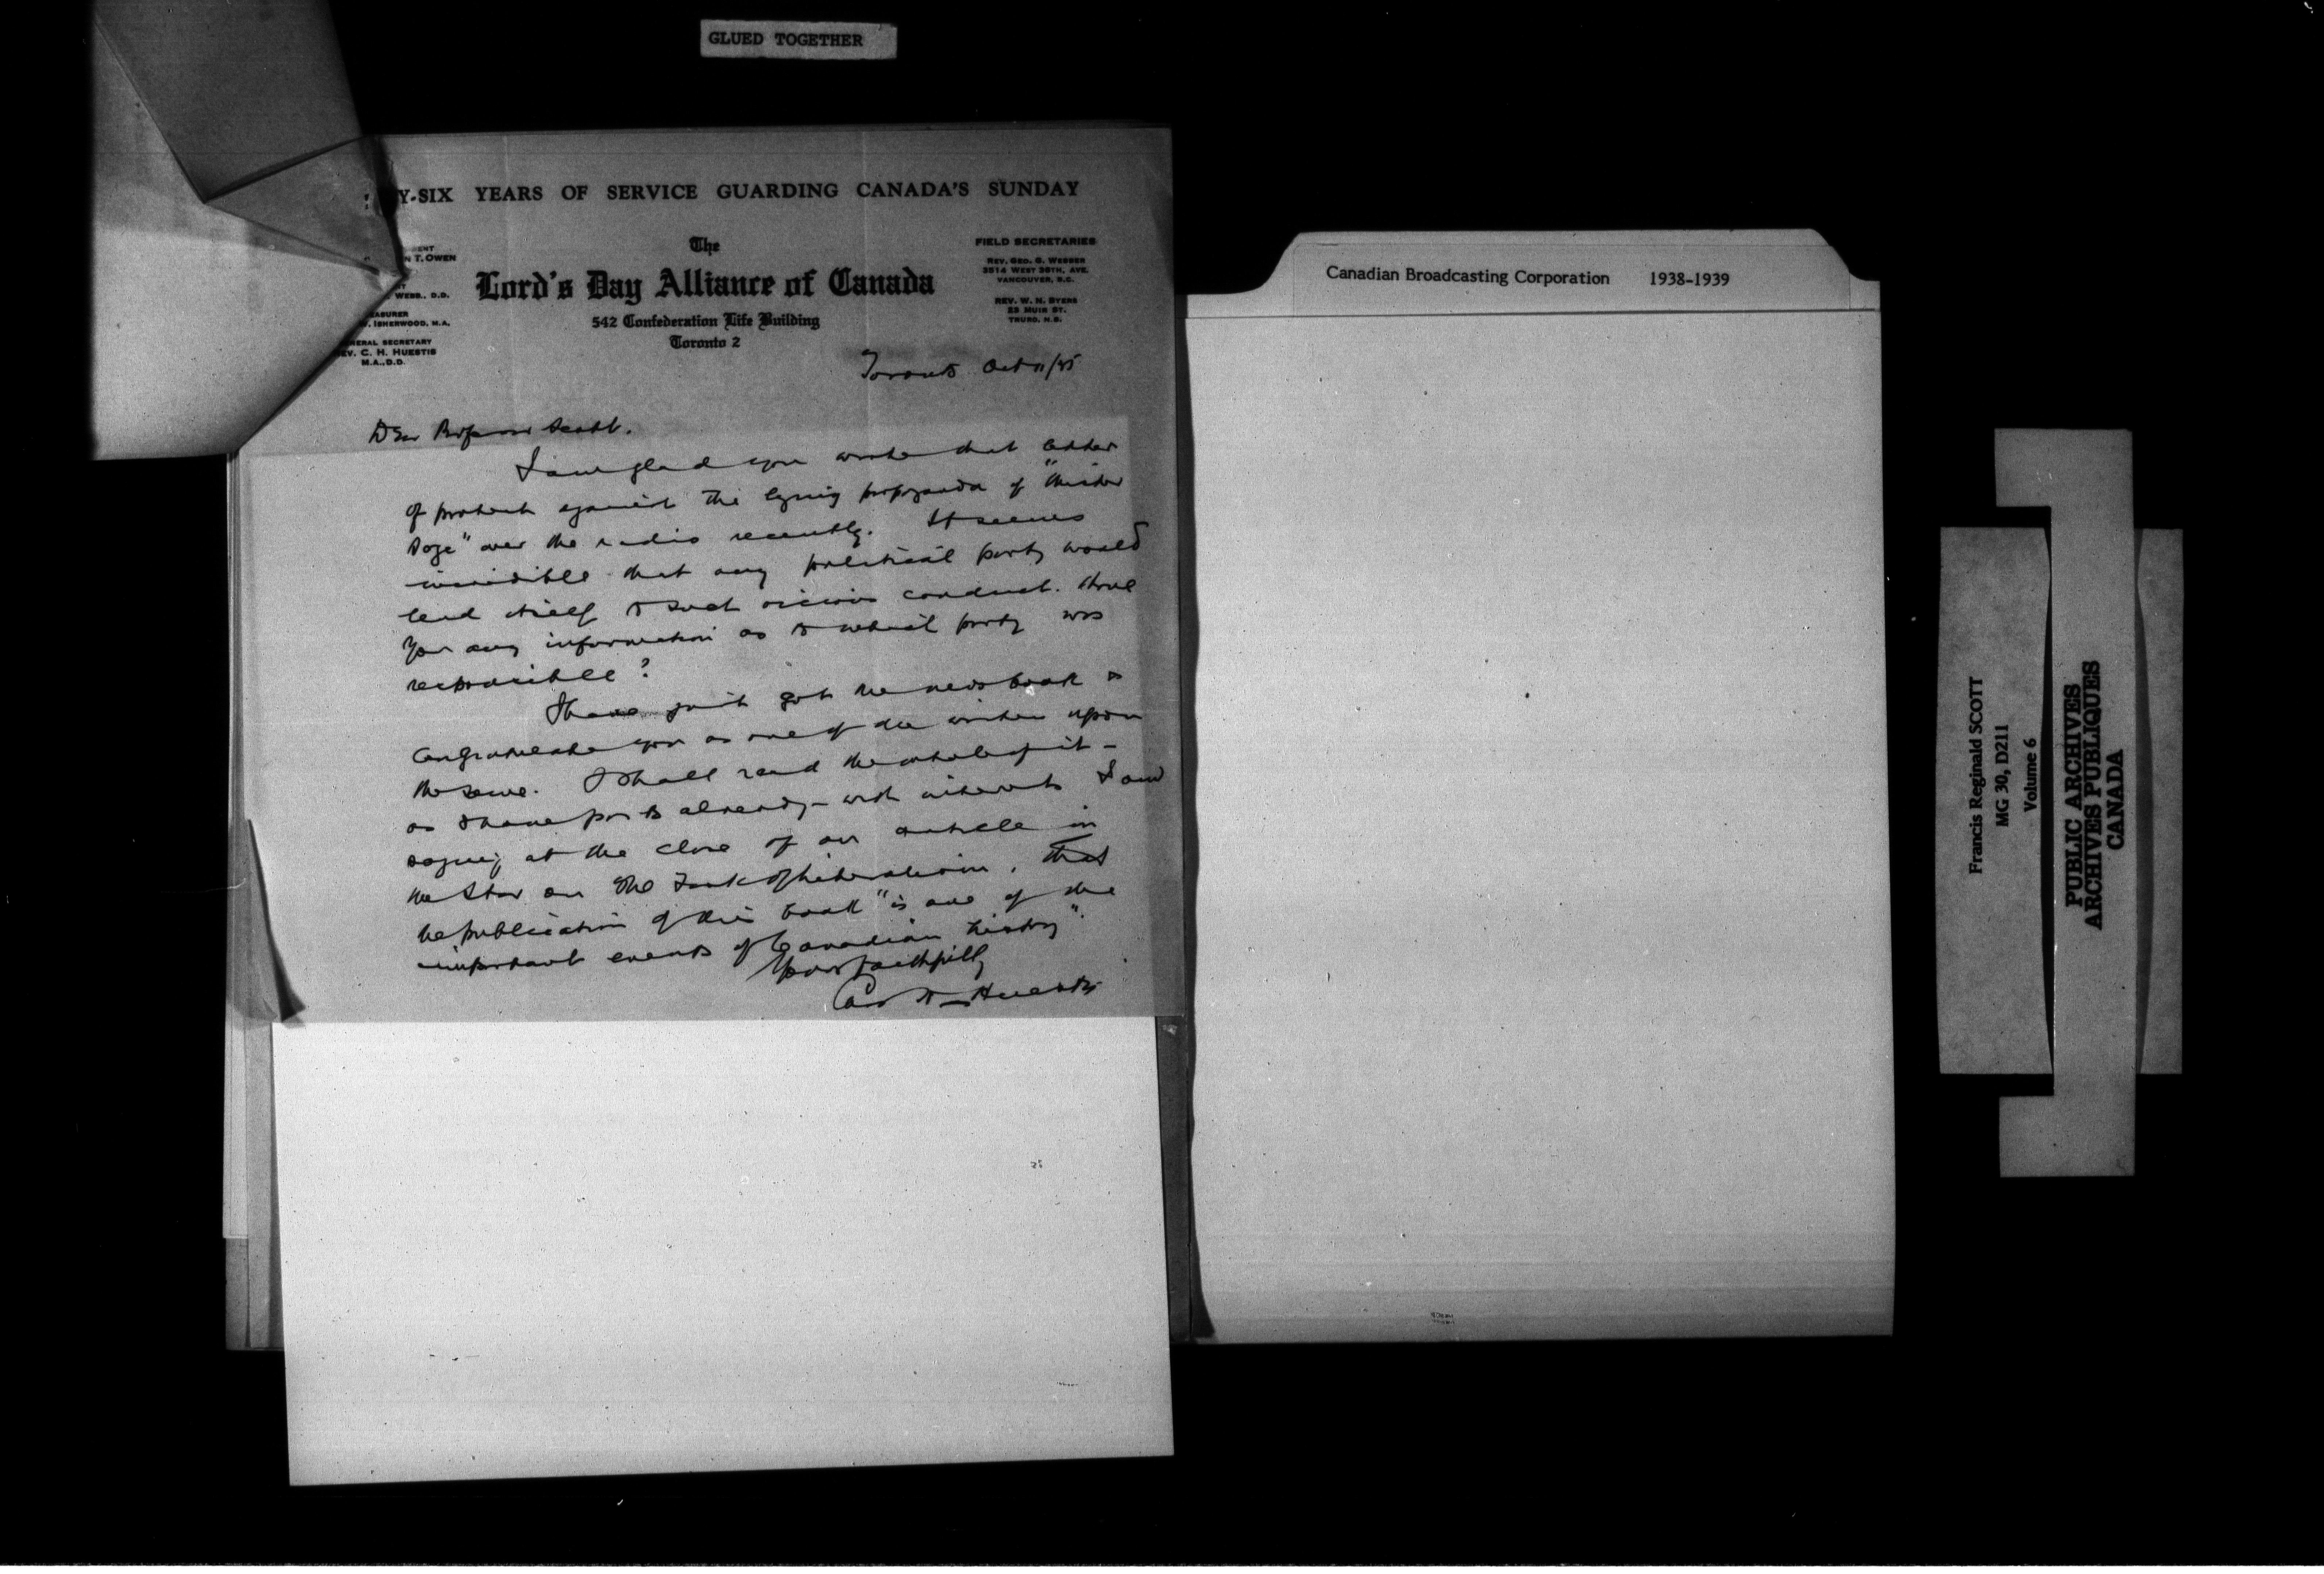 GLUED TOGETHER
Y-SIX YEARS OF SERVICE GUARDING CANADA'S SUNDAY
ENT
N T. OWEN
WEBB., D.D.
EASURER
. ISHERWOOD, M.A.
NERAL SECRETARY
EV. C. H. HUESTIS
M.A., D.D.
The
Lord's Day Alliance of Canada
542 Confederation Life Building
Toronto 2
FIELD SECRETARIES
REV. GEO. G. WEBBER
3514 WEST 38TH. AVE.
VANCOUVER, B.C.
REV. W. N. BYERS
25 MUIR ST.
TRURO, N.S.
Toronto Oct 11/35
Dear Professor Scott.
I am glad you wrote that letter
of protest against the lying propaganda of "Mister
Sage" over the radio recently. It seems
incredible that any political party would
lend itself to such vicious conduct. Have
you any information as to which party was
responsible?
I have just got the new book &
congratulate you as one of the writers upon
the same. I shall read the whole of it -
as I have parts already - with interest. I am
saying at the close of an article in
the Star on The Task of Liberalism, that
the publication of this book "is one of the
important events of Canadian history".
Yours faithfully
Huestis
Canadian Broadcasting Corporation 1938-1939
Francis Reginald SCOTT
MG 30, D211
Volume 6
PUBLIC ARCHIVES
ARCHIVES PUBLIQUES
CANADA